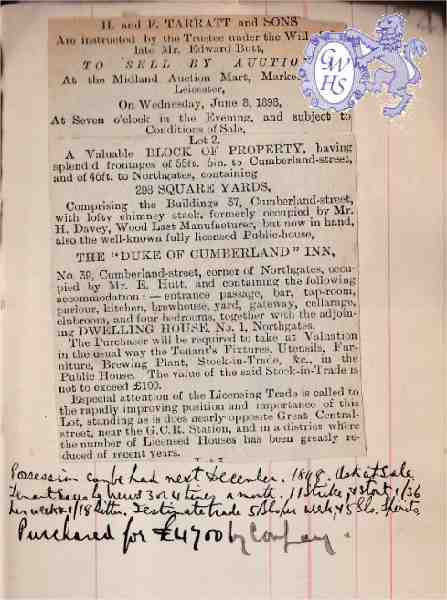 H. and F. TARRATT and SONS
Are instructed by the Trustee under the Will
late Mr. Edward Butt,
TO SELL BY AUCTION
At the Midland Auction Mart, Market
Leicester,
On Wednesday, June 8, 1898,
At Seven o'clock in the Evening, and subject to
Conditions of Sale,
Lot 2.
A Valuable BLOCK OF PROPERTY, having
splendid frontages of 55ft. 5in. to Cumberland-street,
and of 46ft. to Northgates, containing
298 SQUARE YARDS,
Comprising the Buildings 37, Cumberland-street,
with lofty chimney stack, formerly occupied by Mr.
H. Davey, Wood Last Manufacturer, but now in hand,
also the well-known fully licensed Public-house,
THE "DUKE OF CUMBERLAND" INN,
No. 39, Cumberland-street, corner of Northgates, occu-
pied by Mr. E. Hutt, and containing the following
accommodation:—entrance passage, bar, tap-room,
parlour, kitchen, brewhouse, yard, gateway, cellarage,
clubroom, and four bedrooms, together with the adjoin-
ing DWELLING HOUSE, No. 1, Northgates.
The Purchaser will be required to take at Valuation
in the usual way the Tenant's Fixtures, Utensils, Fur-
niture, Brewing Plant, Stock-in-Trade, &c., in the
Public House. The value of the said Stock-in-Trade is
not to exceed £100.
Especial attention of the Licensing Trade is called to
the rapidly improving position and importance of this
Lot, standing as is does nearly opposite Great Central-
street, near the G.C.R. Station, and in a district where
the number of Licensed Houses has been greatly re-
duced of recent years.
Possession can be had next December. 1898. at Sale
Tenant brews 3 or 4 times a month. 11 Strike, 1/36
week 1/18 Bitter. trade week, Spirits
Purchased for £4700 by Company.
GWHS